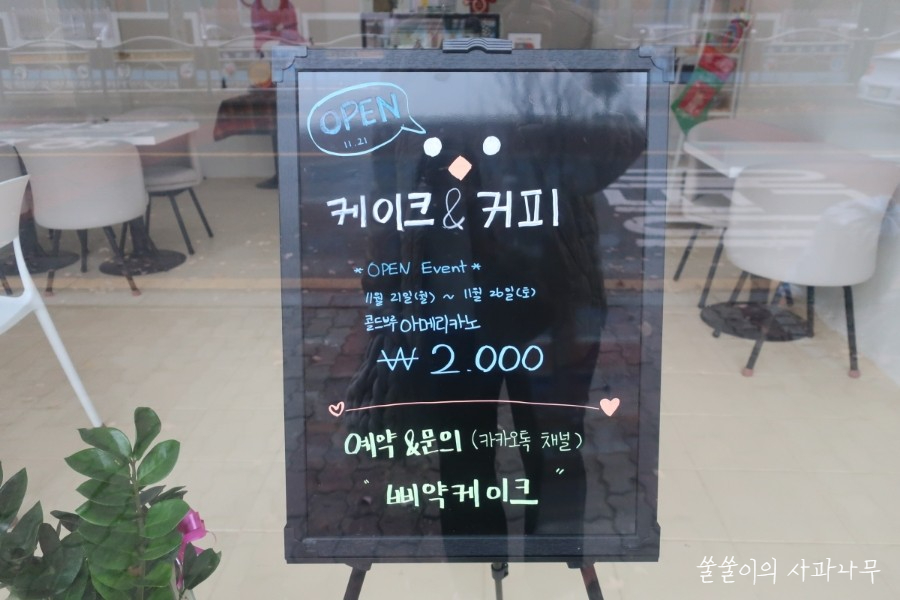 OPEN
11.21
케이크 & 커피
* OPEN Event *
11월 21일(월) ~ 11월 26일(토)
콜드브루 아메리카노
₩ 2.000
예약 & 문의 (카카오톡 채널)
" 삐약케이크 "
쏠쏠이의 사과나무